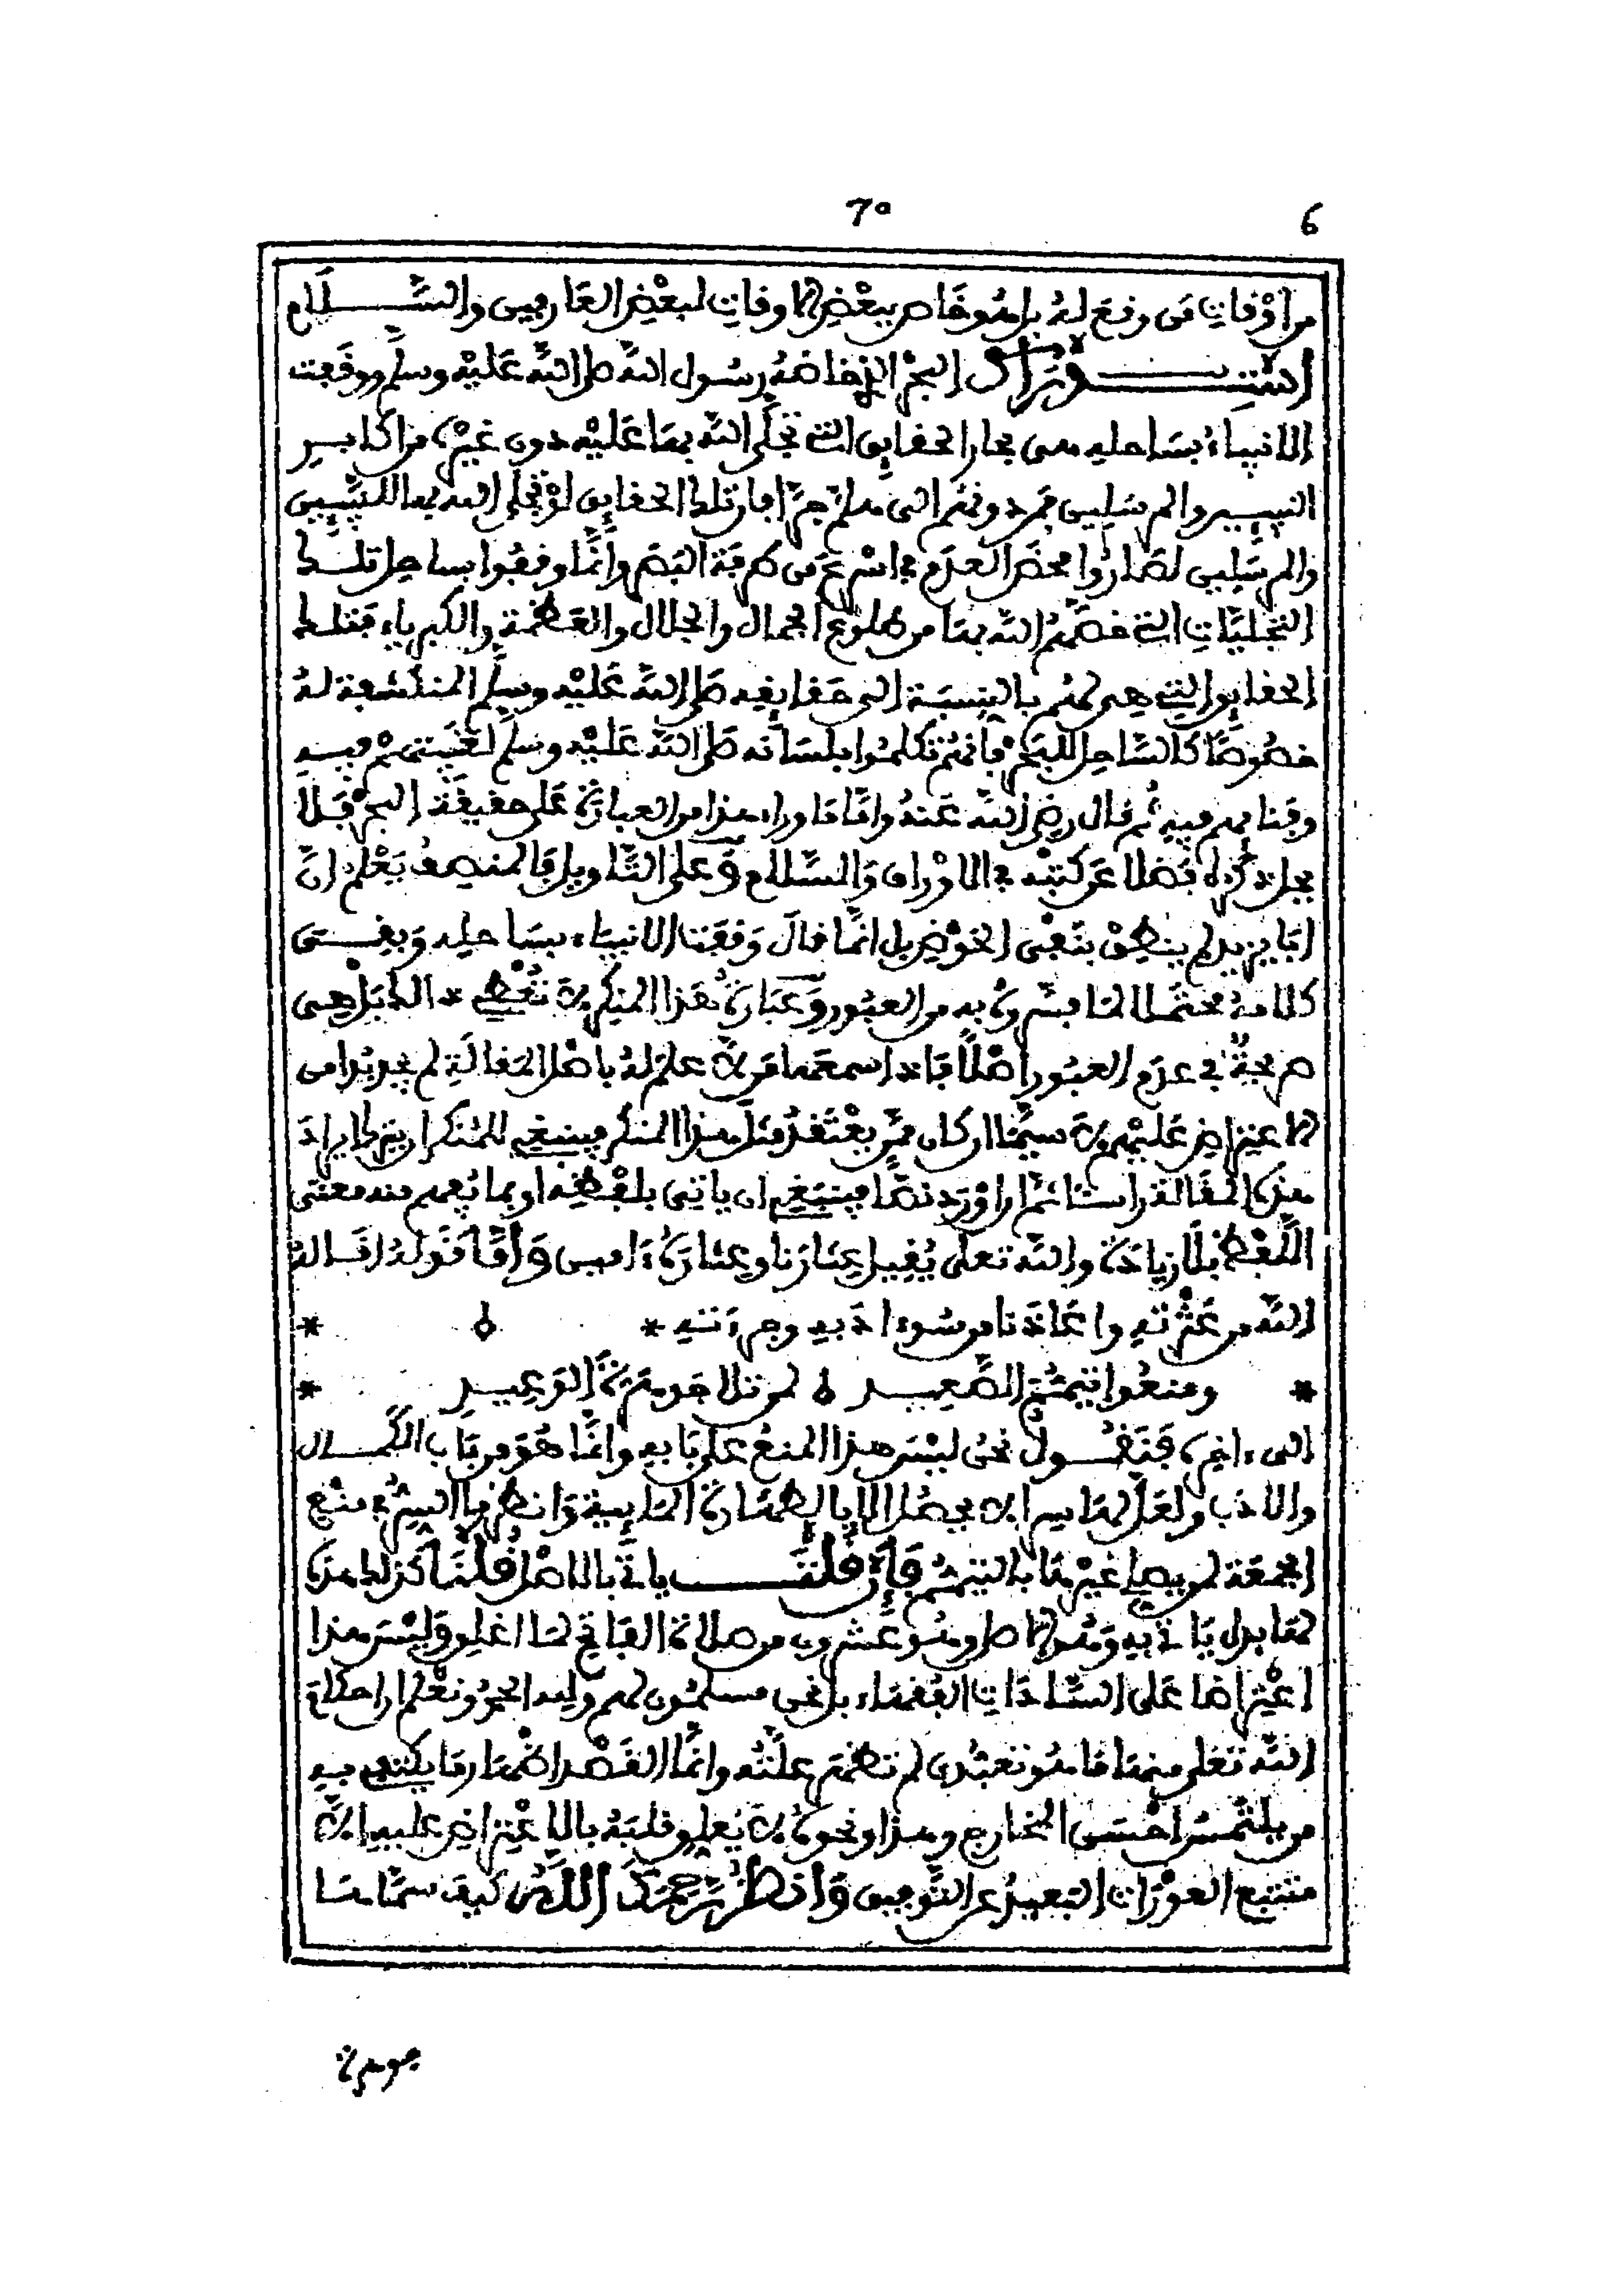 70 6
من اوقات من وقع له بل هو خاص ببعض الاوقات لبعض العارفين والسلام
استدراك البحر الذي خاضه رسول الله صلى الله عليه وسلم ووقفت
الانبياء بساحله هي بحار الحقايق التي تجلى الله بها عليه دون غيره من اكابر
النبيين والمرسلين فمن دونهم الى هلم جرا اذ تلك الحقايق لو تجلى الله بها للنبيين
والمرسلين لصاروا محض العدم في اسرع من طرفة البصر وانما وقفوا بساحل تلك
التجليات التي خصهم الله بها من طلوع الجمال والجلال والعظمة والكبرياء فتلك
الحقايق التي هي لهم بالنسبة الى حقايقه صلى الله عليه وسلم المنكشفة له
خصوصا كالساحل للبحر فانهم تكلموا بلسانه صلى الله عليه وسلم لغيبتهم فيه
وفنايهم فيه ثم قال رضي الله عنه واما ما وراء هذا من العبارة على حقيقة البحر فلا
يحل ذكره فضلا عن كتبه في الاوراق والسلام وعلى التاويل فالمنصف يعلم ان
ابا يزيد لم ينطق بنفي الخوض بل انما قال وقفت الانبياء بساحله وبقي
كلامه محتملا لما فسروه به من العبور وعبارة هذا المنكر لا تعطي ذالك بل هي
صريحة في عدم العبور اصلا فاذا سمعها من لا علم له باصل المقالة لم يجد بدا من
الاعتراض عليهم لا سيما ان كان ممن يعتقد مثل هذا المنكر فينبغي للمنكر ان يترك ايراد
هذه المقالة راسا ثم ان اورد نصا فينبغي ان ياتي بلفظه او بما يفهم منه معنى
اللفظ بلا زيادة والله تعلى يقيل عثارنا وعثاره ءامين واما قوله اقاله
الله من عثرته واعاذنا من سوء ادبه وجرءته *
* ومنعوا تيمم الصعيد لمن تلا جوهرة الوعيد *
الى ءاخره فنقول نحن ليس هذا المنع على بابه وانما هو من باب الكمال
والادب ولعل لها سرا لا يحصل الا بالطهارة المايية وانظر ما السر في منع
الجمعة لمن يصلي غيرها بالتيمم فإن قلت ياتي بالاصل قلنا كذلك هذه
لها بدل ياتي به وهو الاصل وهو عشرون من صلاة الفاتح لما اغلق وليس هذا
اعتراضا على السادات الفقهاء بل نحن مسلمون لهم ولله الحمد ونعلم ان احكام
الله تعلى منها ما هو تعبدي لم تظهر علته وانما القصد اظهار ما يكتفي به
من يلتمس احسن المخارج وهذا ونحوه لا يعلق قلبه بالاعتراض عليه الا
متتبع العورات البعيد عن التوفيق وانظر رحمك الله كيف سماها
جوهرة